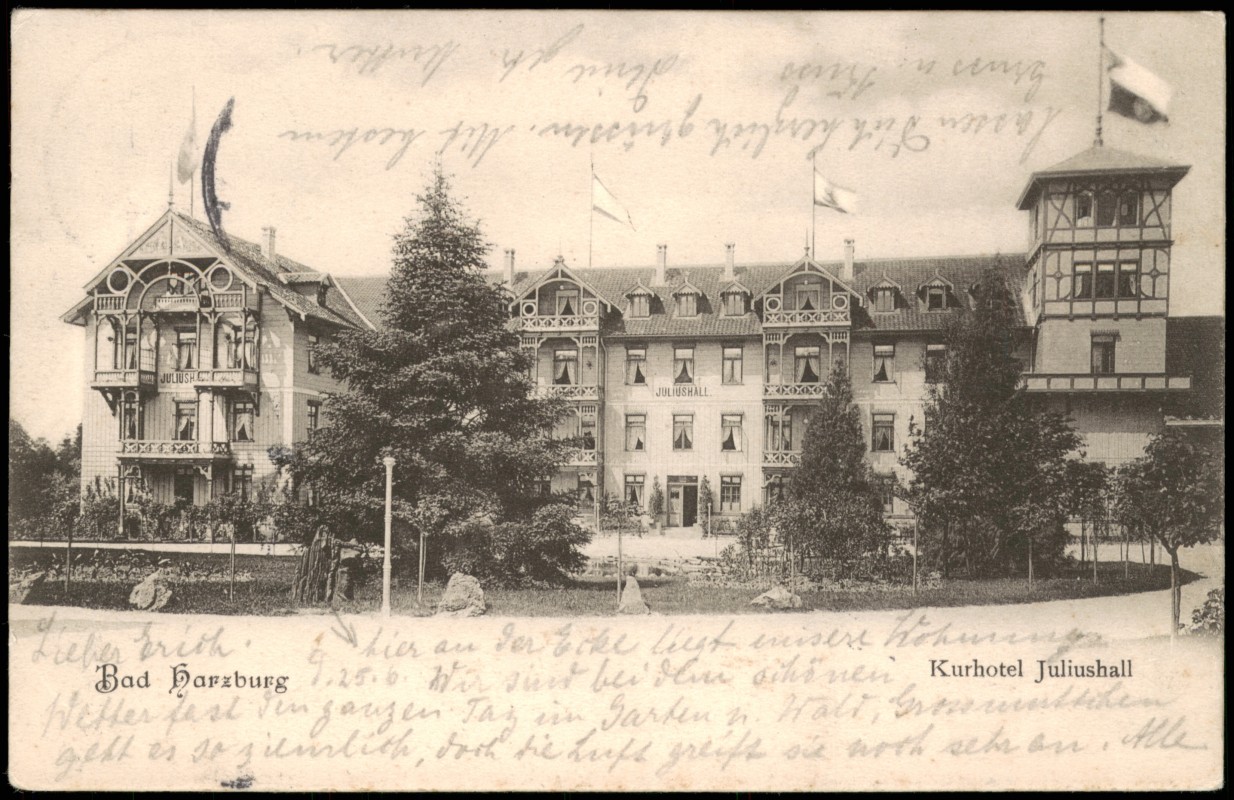 JULIUSHALL
JULIUSHALL.
Lieber Erich. hier an der Ecke liegt unsere Wohnung.
Bad Harzburg
Kurhotel Juliushall
25.6. Wir sind bei dem schönen
Wetter fast den ganzen Tag im Garten u. Wald, Grossmuttchen
geht es so ziemlich, doch die Luft greift sie noch sehr an. Alle
lassen Dich herzlich grüssen. Mit bestem
Gruss u. Kuss
Deine gtr. Mutter.